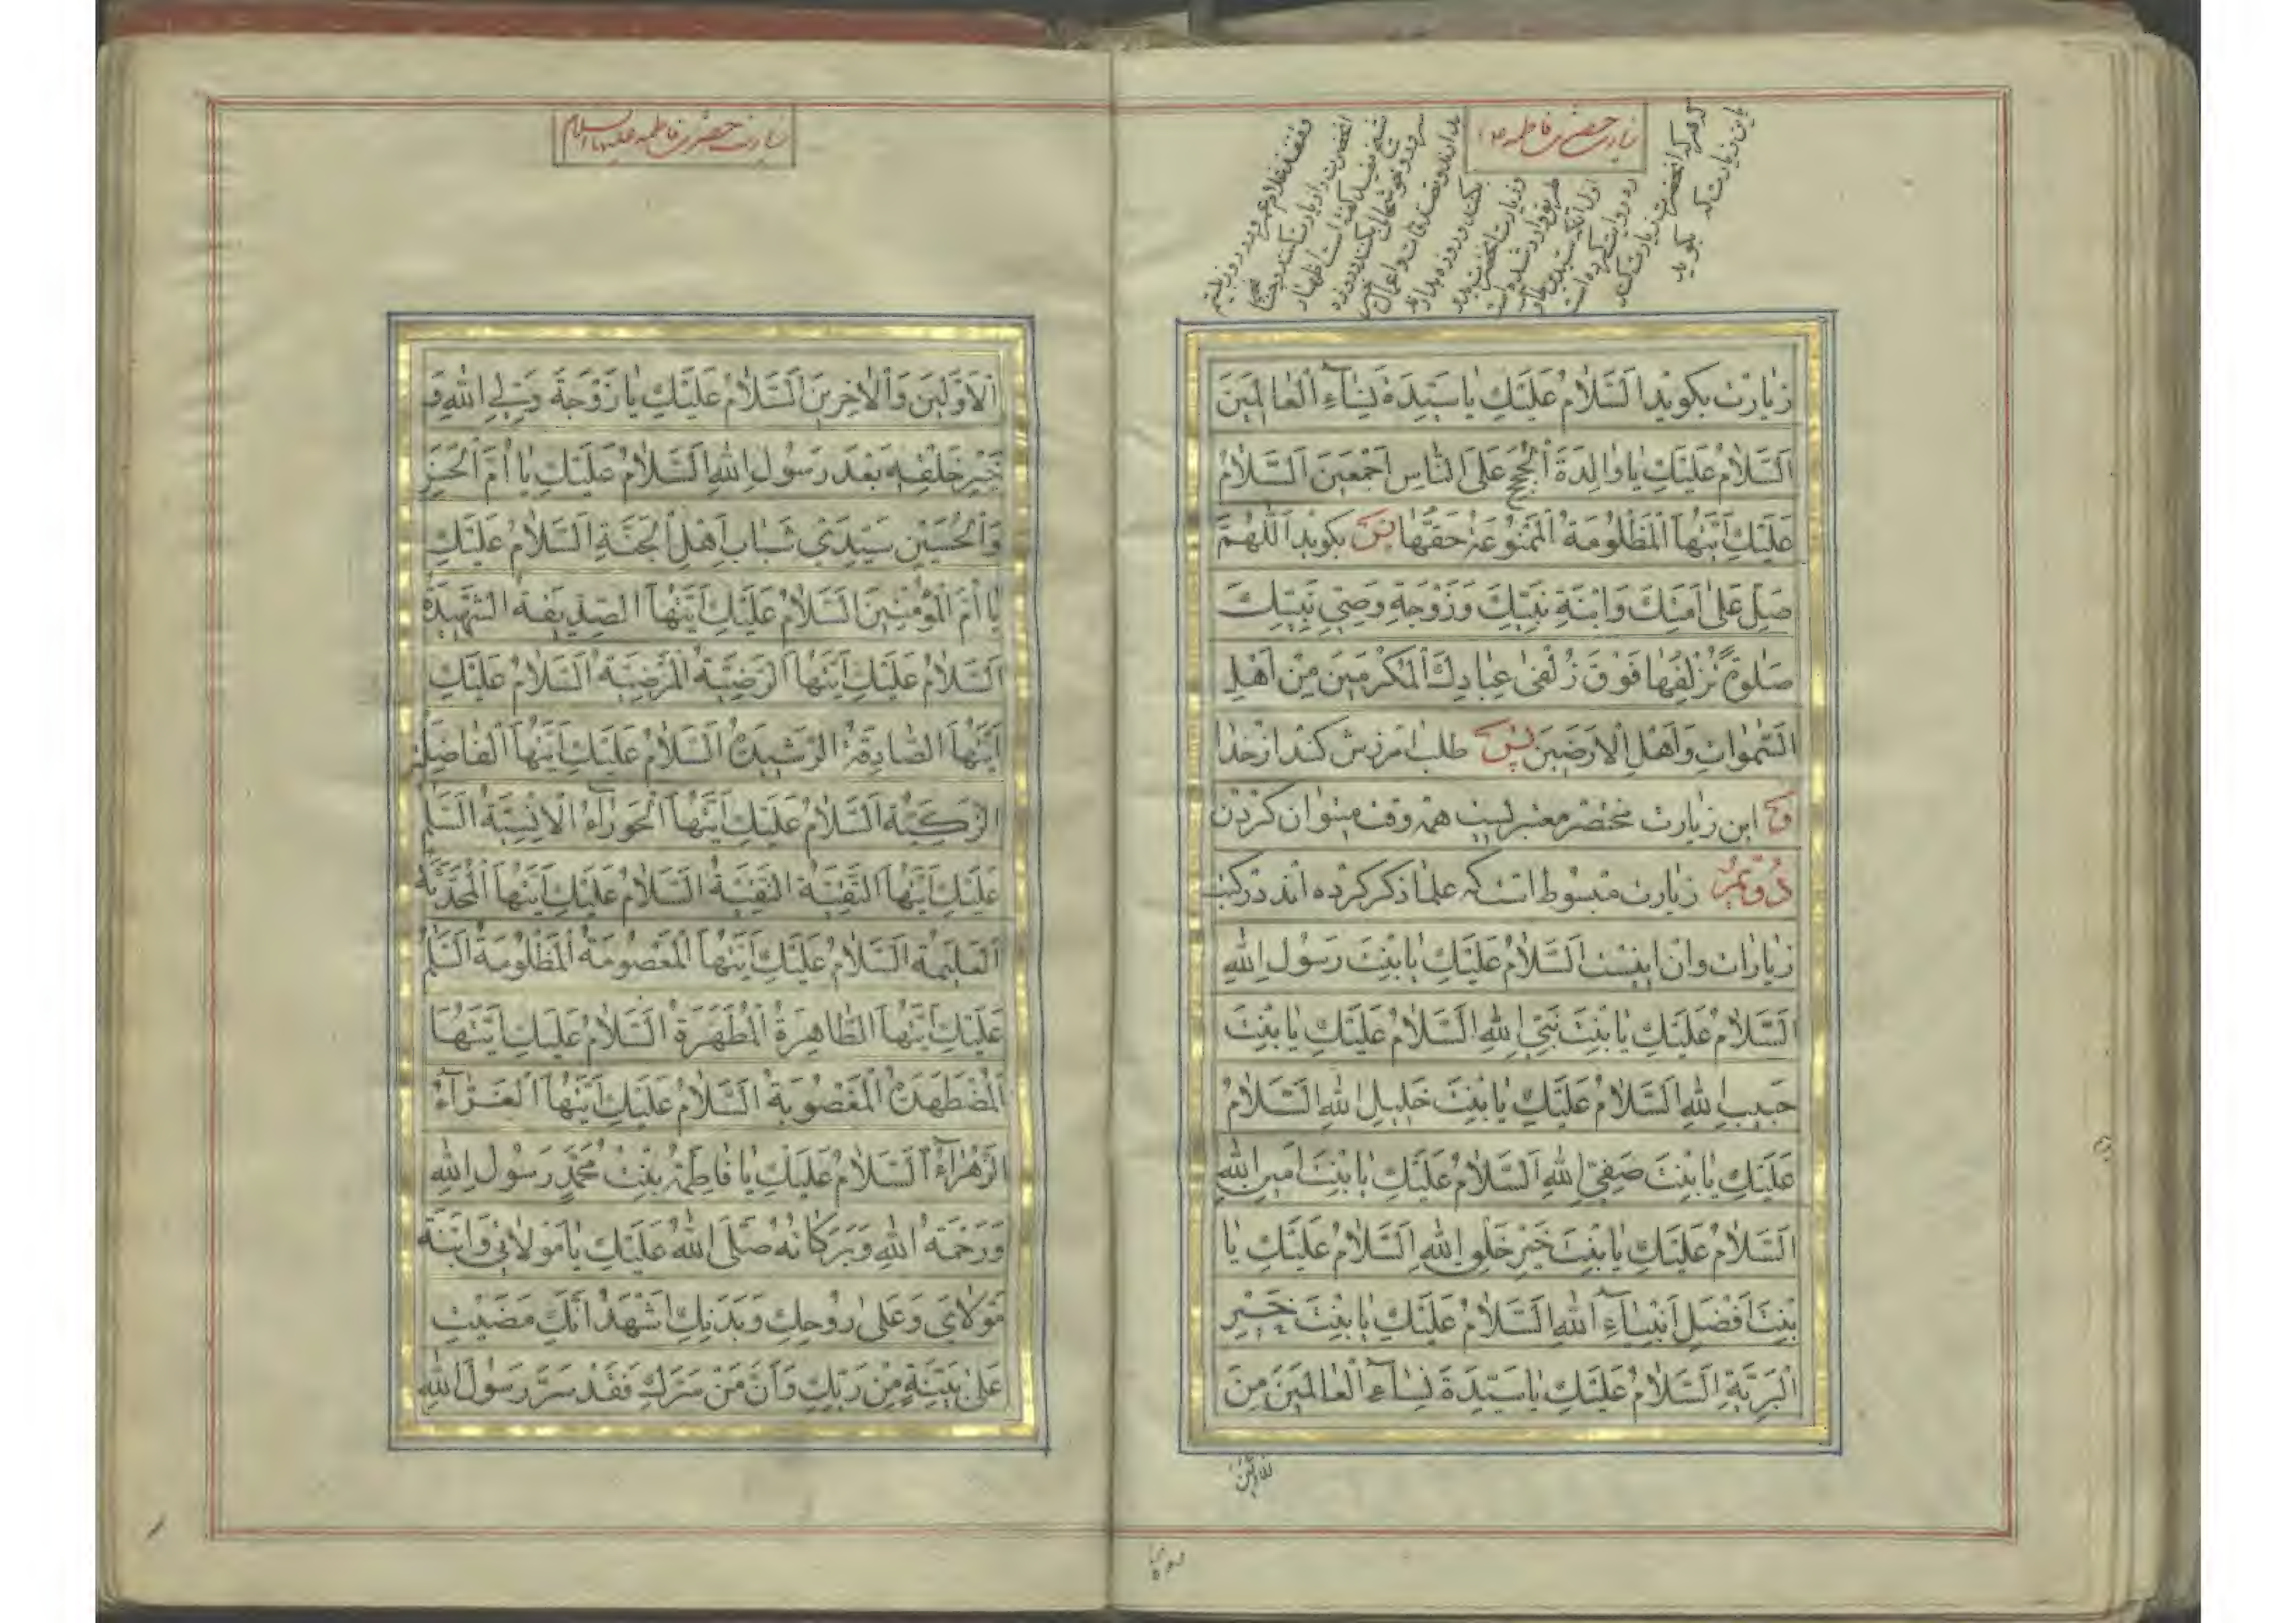 زیارت حضرت فاطمه ع
زِیارَت بکوید اَلسَّلامُ عَلَیْكِ یا سَیِّدَةَ نِساءِ الْعالَمینَ
اَلسَّلامُ عَلَیْكِ یا والِدَةَ الْحُجَجِ عَلَی النّاسِ اَجْمَعینَ اَلسَّلامُ
عَلَیْكِ اَیَّتُهَا الْمَظْلُومَةُ الْمَمْنُوعَةُ حَقَّها پس بکوید اَللّهُمَّ
صَلِّ عَلی اَمَتِكَ وَابْنَةِ نَبِیِّكَ وَزَوْجَةِ وَصِیِّ نَبِیِّكَ
صَلوةً تُزْلِفُها فَوْقَ زُلْفی عِبادِكَ الْمُكْرَمینَ مِنْ اَهْلِ
السَّمواتِ وَاَهْلِ الْاَرَضینَ پس طلب امرزش کند از خدا
و این زیارت مختصر معتبریست همه وقت میتوان کردن
دُوّیمُ زیارت مبسوط است که علما ذکر کرده اند در کتب
زیارات و ان اینست اَلسَّلامُ عَلَیْكِ یا بِنْتَ رَسُولِ اللهِ
اَلسَّلامُ عَلَیْكِ یا بِنْتَ نَبِیِّ اللهِ اَلسَّلامُ عَلَیْكِ یا بِنْتَ
حَبیبِ اللهِ اَلسَّلامُ عَلَیْكِ یا بِنْتَ خَلیلِ اللهِ اَلسَّلامُ
عَلَیْكِ یا بِنْتَ صَفِیِّ اللهِ اَلسَّلامُ عَلَیْكِ یا بِنْتَ اَمینِ اللهِ
اَلسَّلامُ عَلَیْكِ یا بِنْتَ خَیْرِ خَلْقِ اللهِ اَلسَّلامُ عَلَیْكِ یا
بِنْتَ اَفْضَلِ اَنْبِیآءِ اللهِ اَلسَّلامُ عَلَیْكِ یا بِنْتَ خَیْرِ
الْبَرِیَّةِ اَلسَّلامُ عَلَیْكِ یا سَیِّدَةَ نِسآءِ الْعالَمینَ مِنَ
زیارت حضرت فاطمه علیها السلام
الْاَوَّلینَ وَالْاخِرینَ اَلسَّلامُ عَلَیْكِ یا زَوْجَةَ وَلِیِّ اللهِ وَ
خَیْرِ خَلْقِهِ بَعْدَ رَسُولِ اللهِ اَلسَّلامُ عَلَیْكِ یا اُمَّ الْحَسَنِ
وَالْحُسَیْنِ سَیِّدَیْ شَبابِ اَهْلِ الْجَنَّةِ اَلسَّلامُ عَلَیْكِ
یا اُمَّ الْمُؤْمِنینَ اَلسَّلامُ عَلَیْكِ اَیَّتُهَا الصِّدّیقَةُ الشَّهیدَةُ
اَلسَّلامُ عَلَیْكِ اَیَّتُهَا الرَّضِیَّةُ الْمَرْضِیَّةُ اَلسَّلامُ عَلَیْكِ
اَیَّتُهَا الصّادِقَةُ الرَّشیدَةُ اَلسَّلامُ عَلَیْكِ اَیَّتُهَا الْفاضِلَةُ
الزَّكِیَّةُ اَلسَّلامُ عَلَیْكِ اَیَّتُهَا الْحَوْرآءُ الْاِنْسِیَّةُ اَلسَّلمُ
عَلَیْكِ اَیَّتُهَا التَّقِیَّةُ النَّقِیَّةُ اَلسَّلامُ عَلَیْكِ اَیَّتُهَا الْمُحَدَّثَةُ
الْعَلیمَةُ اَلسَّلامُ عَلَیْكِ اَیَّتُهَا الْمَعْصُومَةُ الْمَظْلُومَةُ اَلسَّلمُ
عَلَیْكِ اَیَّتُهَا الطّاهِرَةُ الْمُطَهَّرَةُ اَلسَّلامُ عَلَیْكِ اَیَّتُهَا
الْمُضْطَهَدَةُ الْمَغْصُوبَةُ اَلسَّلامُ عَلَیْكِ اَیَّتُهَا الْغَرّآءُ
الزَّهْرآءُ اَلسَّلامُ عَلَیْكِ یا فاطِمَةُ بِنْتَ مُحَمَّدٍ رَسُولِ اللهِ
وَرَحْمَةُ اللهِ وَبَرَكاتُهُ صَلَّی اللهُ عَلَیْكِ یا مَوْلاتی وَابْنَةَ
مَوْلایَ وَعَلی رُوحِكِ وَبَدَنِكِ اَشْهَدُ اَنَّكِ مَضَیْتِ
عَلی بَیِّنَةٍ مِنْ رَبِّكِ وَاَنَّ مَنْ سَرَّكِ فَقَدْ سَرَّ رَسُولَ اللهِ